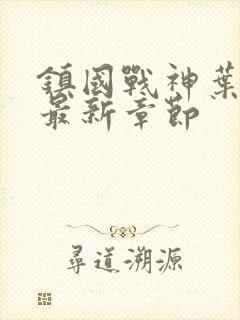 鎮國戰神葉
最新章節
尋道溯源